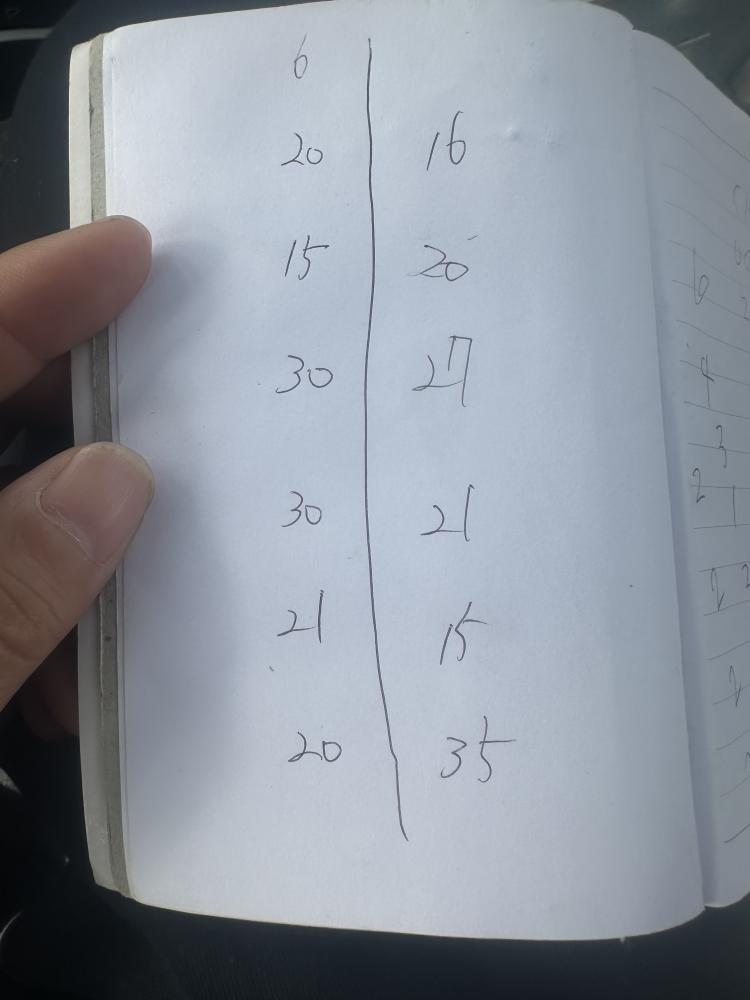 6
20 16
15 20
30 27
30 21
21 15
20 35
6
4
3
2
2
2